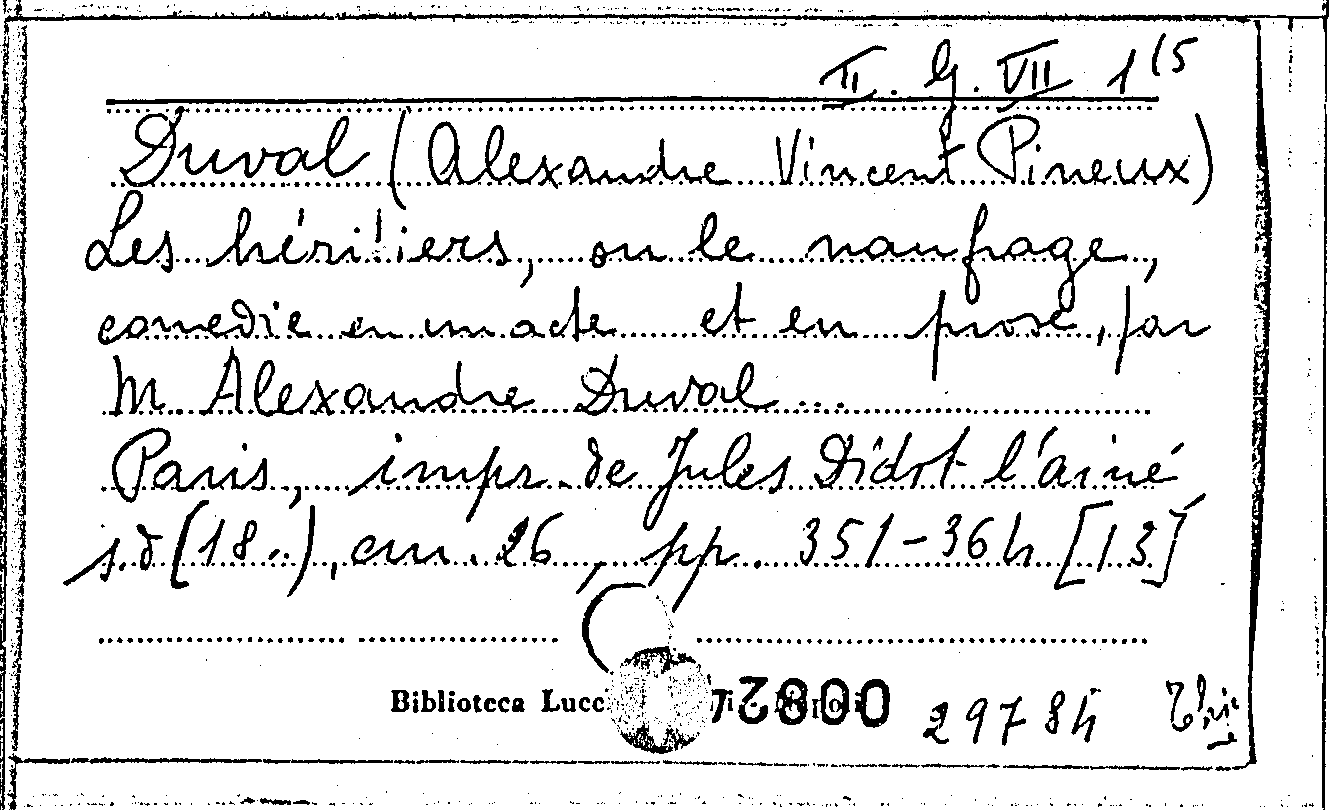 II. G. VII 1(5
Duval (Alexandre Vincent Pineux)
Les héritiers, ou le naufrage,
comedie en un acte et en prose, par
M. Alexandre Duval ...
Paris, impr. de Jules Didot l'ainé
s.d (18..), cm. 26, pp. 351-364 [13]
Biblioteca Lucc
29784